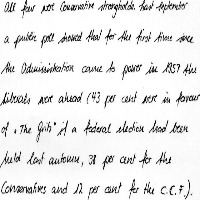 all four were Conservative strongholds. Last September
a public poll showed that for the first time since
the Administration came to power in 1957 the
Liberals were ahead (43 per cent were in favour
of "The Grits" if a federal election had been
held last autumn, 38 per cent for the
Conservatives and 12 per cent for the C.C.F.).